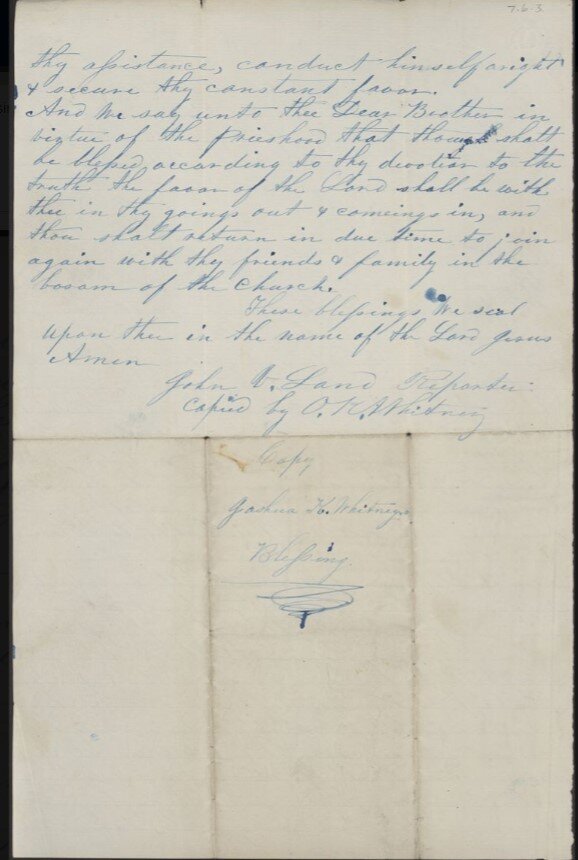 7.6.3
thy assistance, conduct himself aright
& secure thy constant favor.
And we say unto thee Dear Brother in
virtue of the Prieshood that thou shalt
be blessed according to thy devotion to the
truth the favor of the Lord shall be with
thee in thy goings out & comeings in, and
thou shalt return in due time to join
again with thy friends & family in the
bosam of the Church.
These blessings we seal
upon thee in the name of the Lord Jesus
Amen
John V. Land Reporter.
Copied by O. K. Whitney
Copy
Joshua K. Whitneys
Blessing.